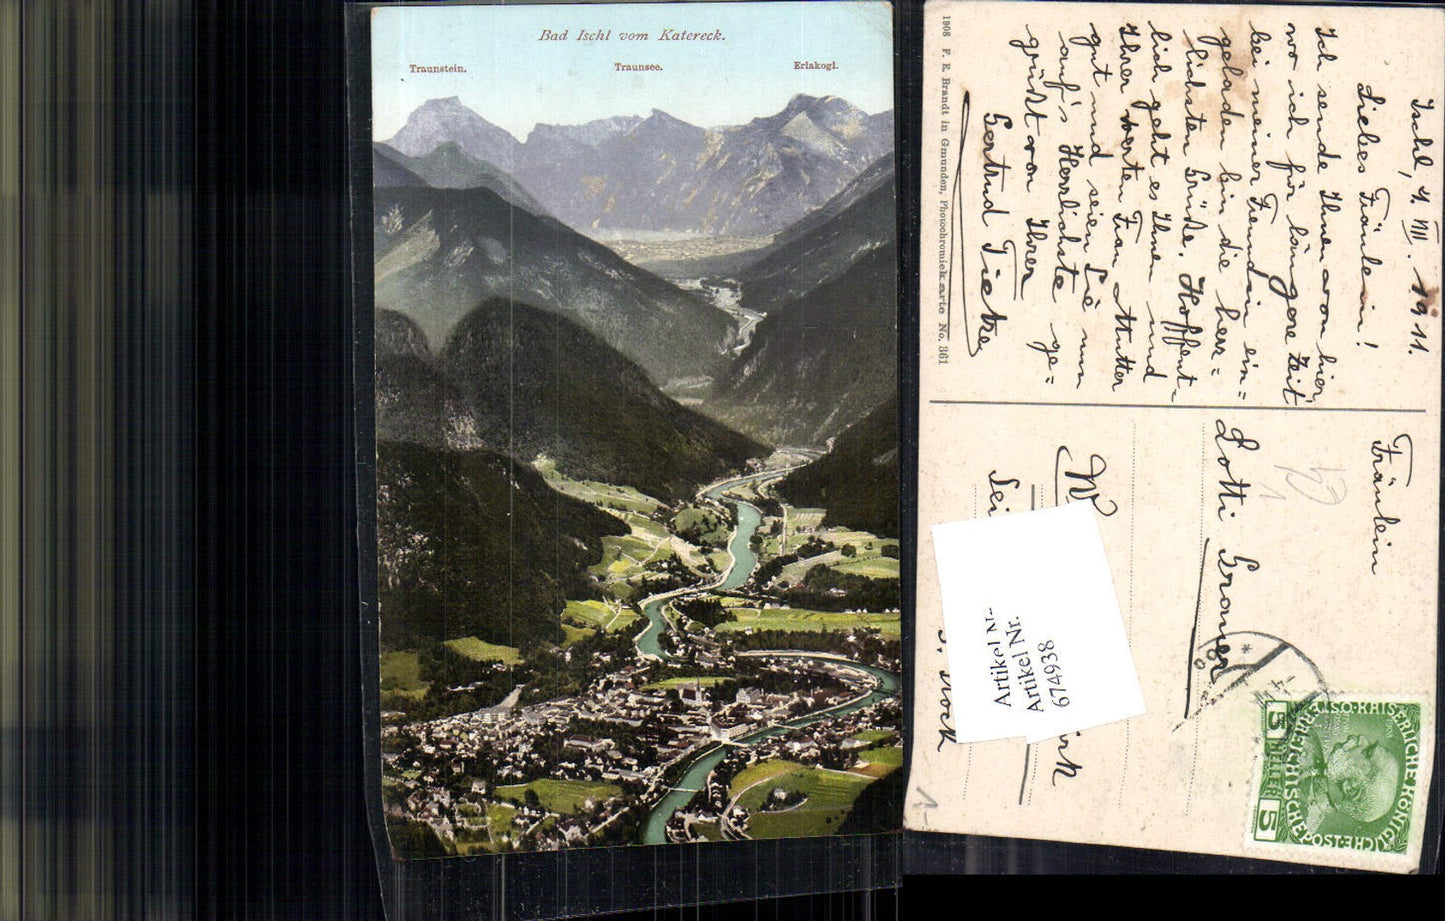 Bad Ischl vom Katereck.
Traunstein. Traunsee. Erlakogl.
1908 F. E. Brandt in Gmunden, Photochromiekarte No. 361
Ischl, 4. VIII. 1911.
Liebes Fräulein!
Ich sende Ihnen von hier,
wo ich für längere Zeit
bei meiner Freundin ein=
geladen bin die herz=
lichsten Grüße. Hoffent-
lich geht es Ihnen und
Ihrer werten Frau Mutter
gut und seien Sie nun
auf's Herzlichste ge=
grüßt von Ihrer
Gertrud Tietze
Fräulein
Lotti Gromer
W
Sei
irk
Stock
Artikel Nr.
Artikel Nr.
674938
KAISERLICHE KÖNIGLICHE ÖSTERREICHISCHE POST
5 HELLER 5